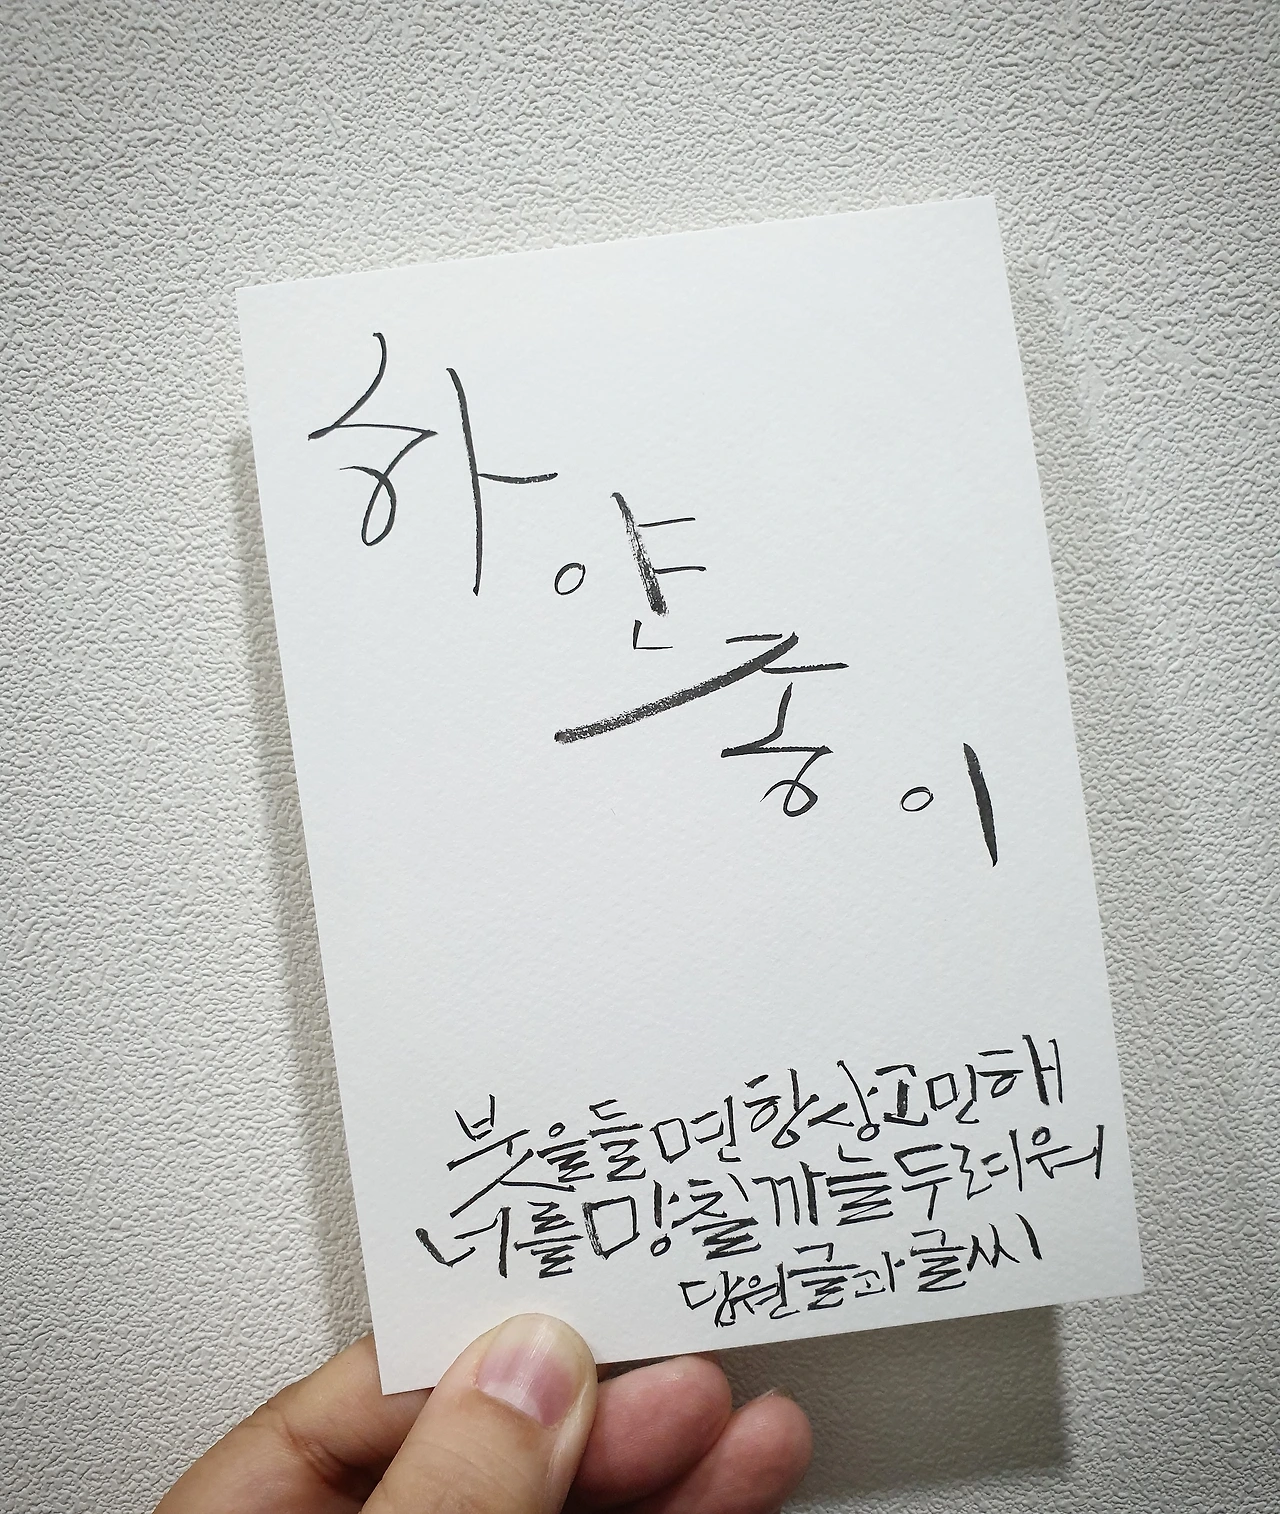 하얀 종이
붓을 들면 항상 고민해
너를 망칠까 늘 두려워
담원 글과 글씨